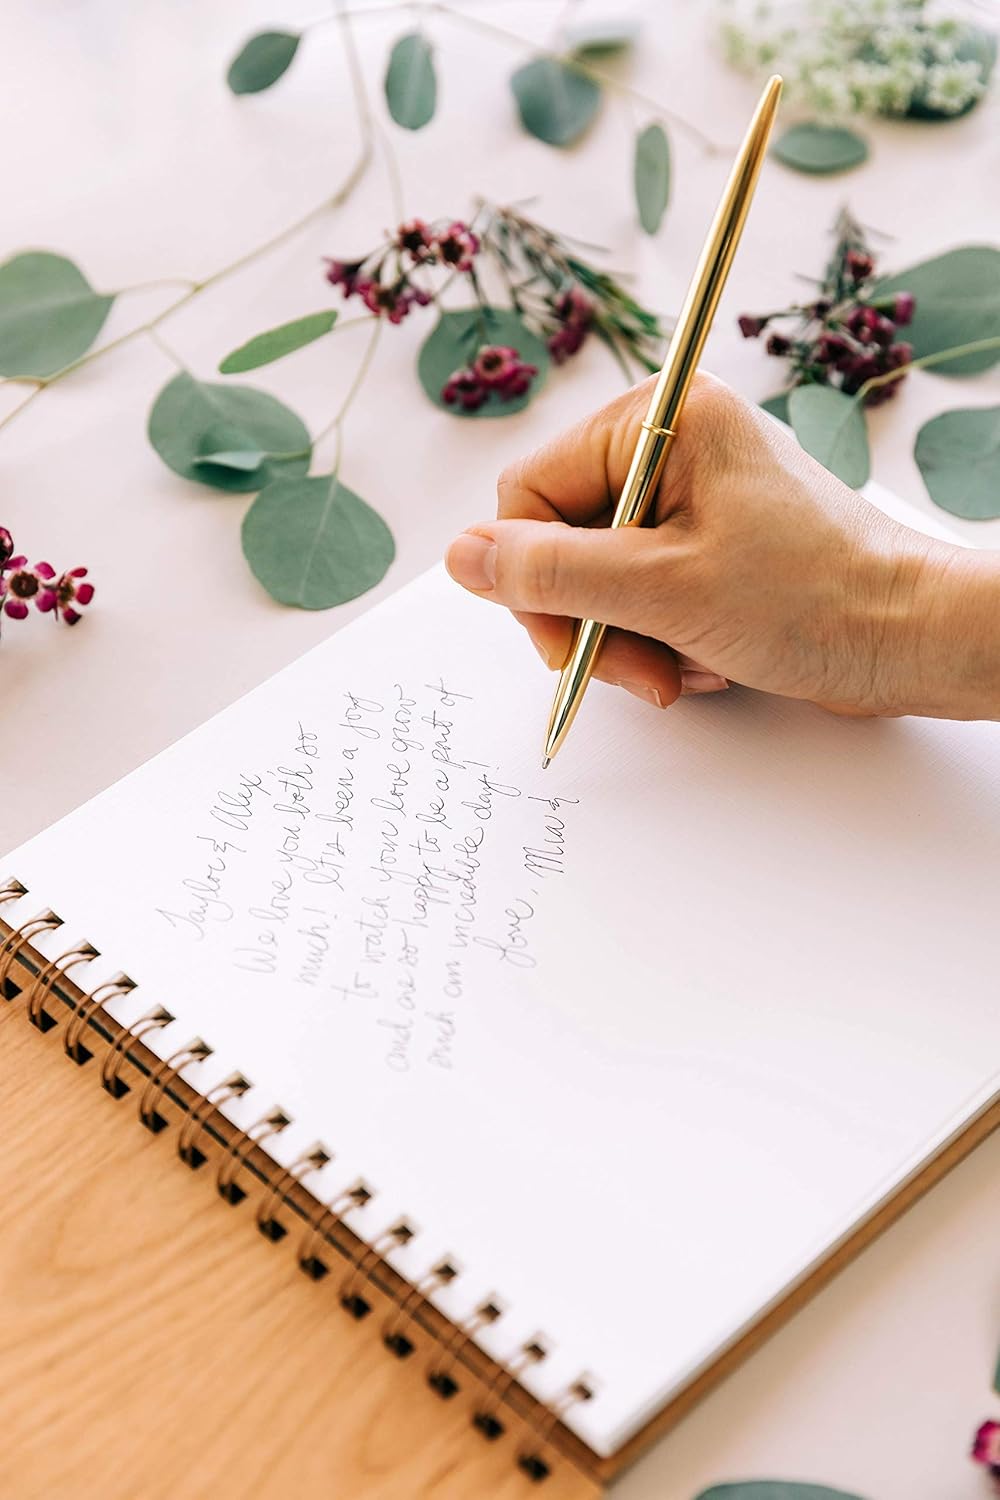 Taylor & Alex,
We love you both so
much! It's been a joy
to watch your love grow
and are so happy to be a part of
such an incredible day!
Love, Mia &